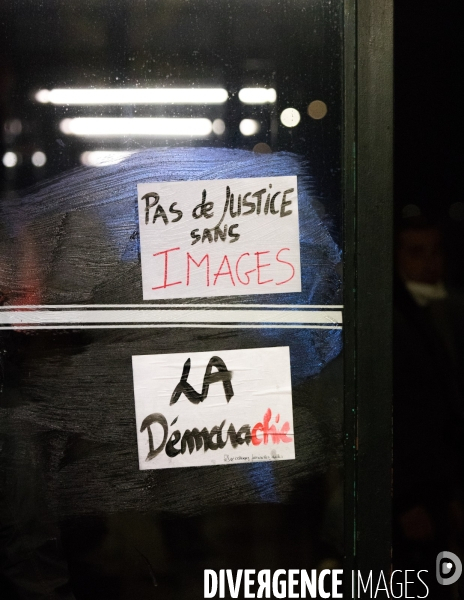 PAS de JUSTICE
SANS
IMAGES
LA
Démocrachie
DIVERGENCE IMAGES